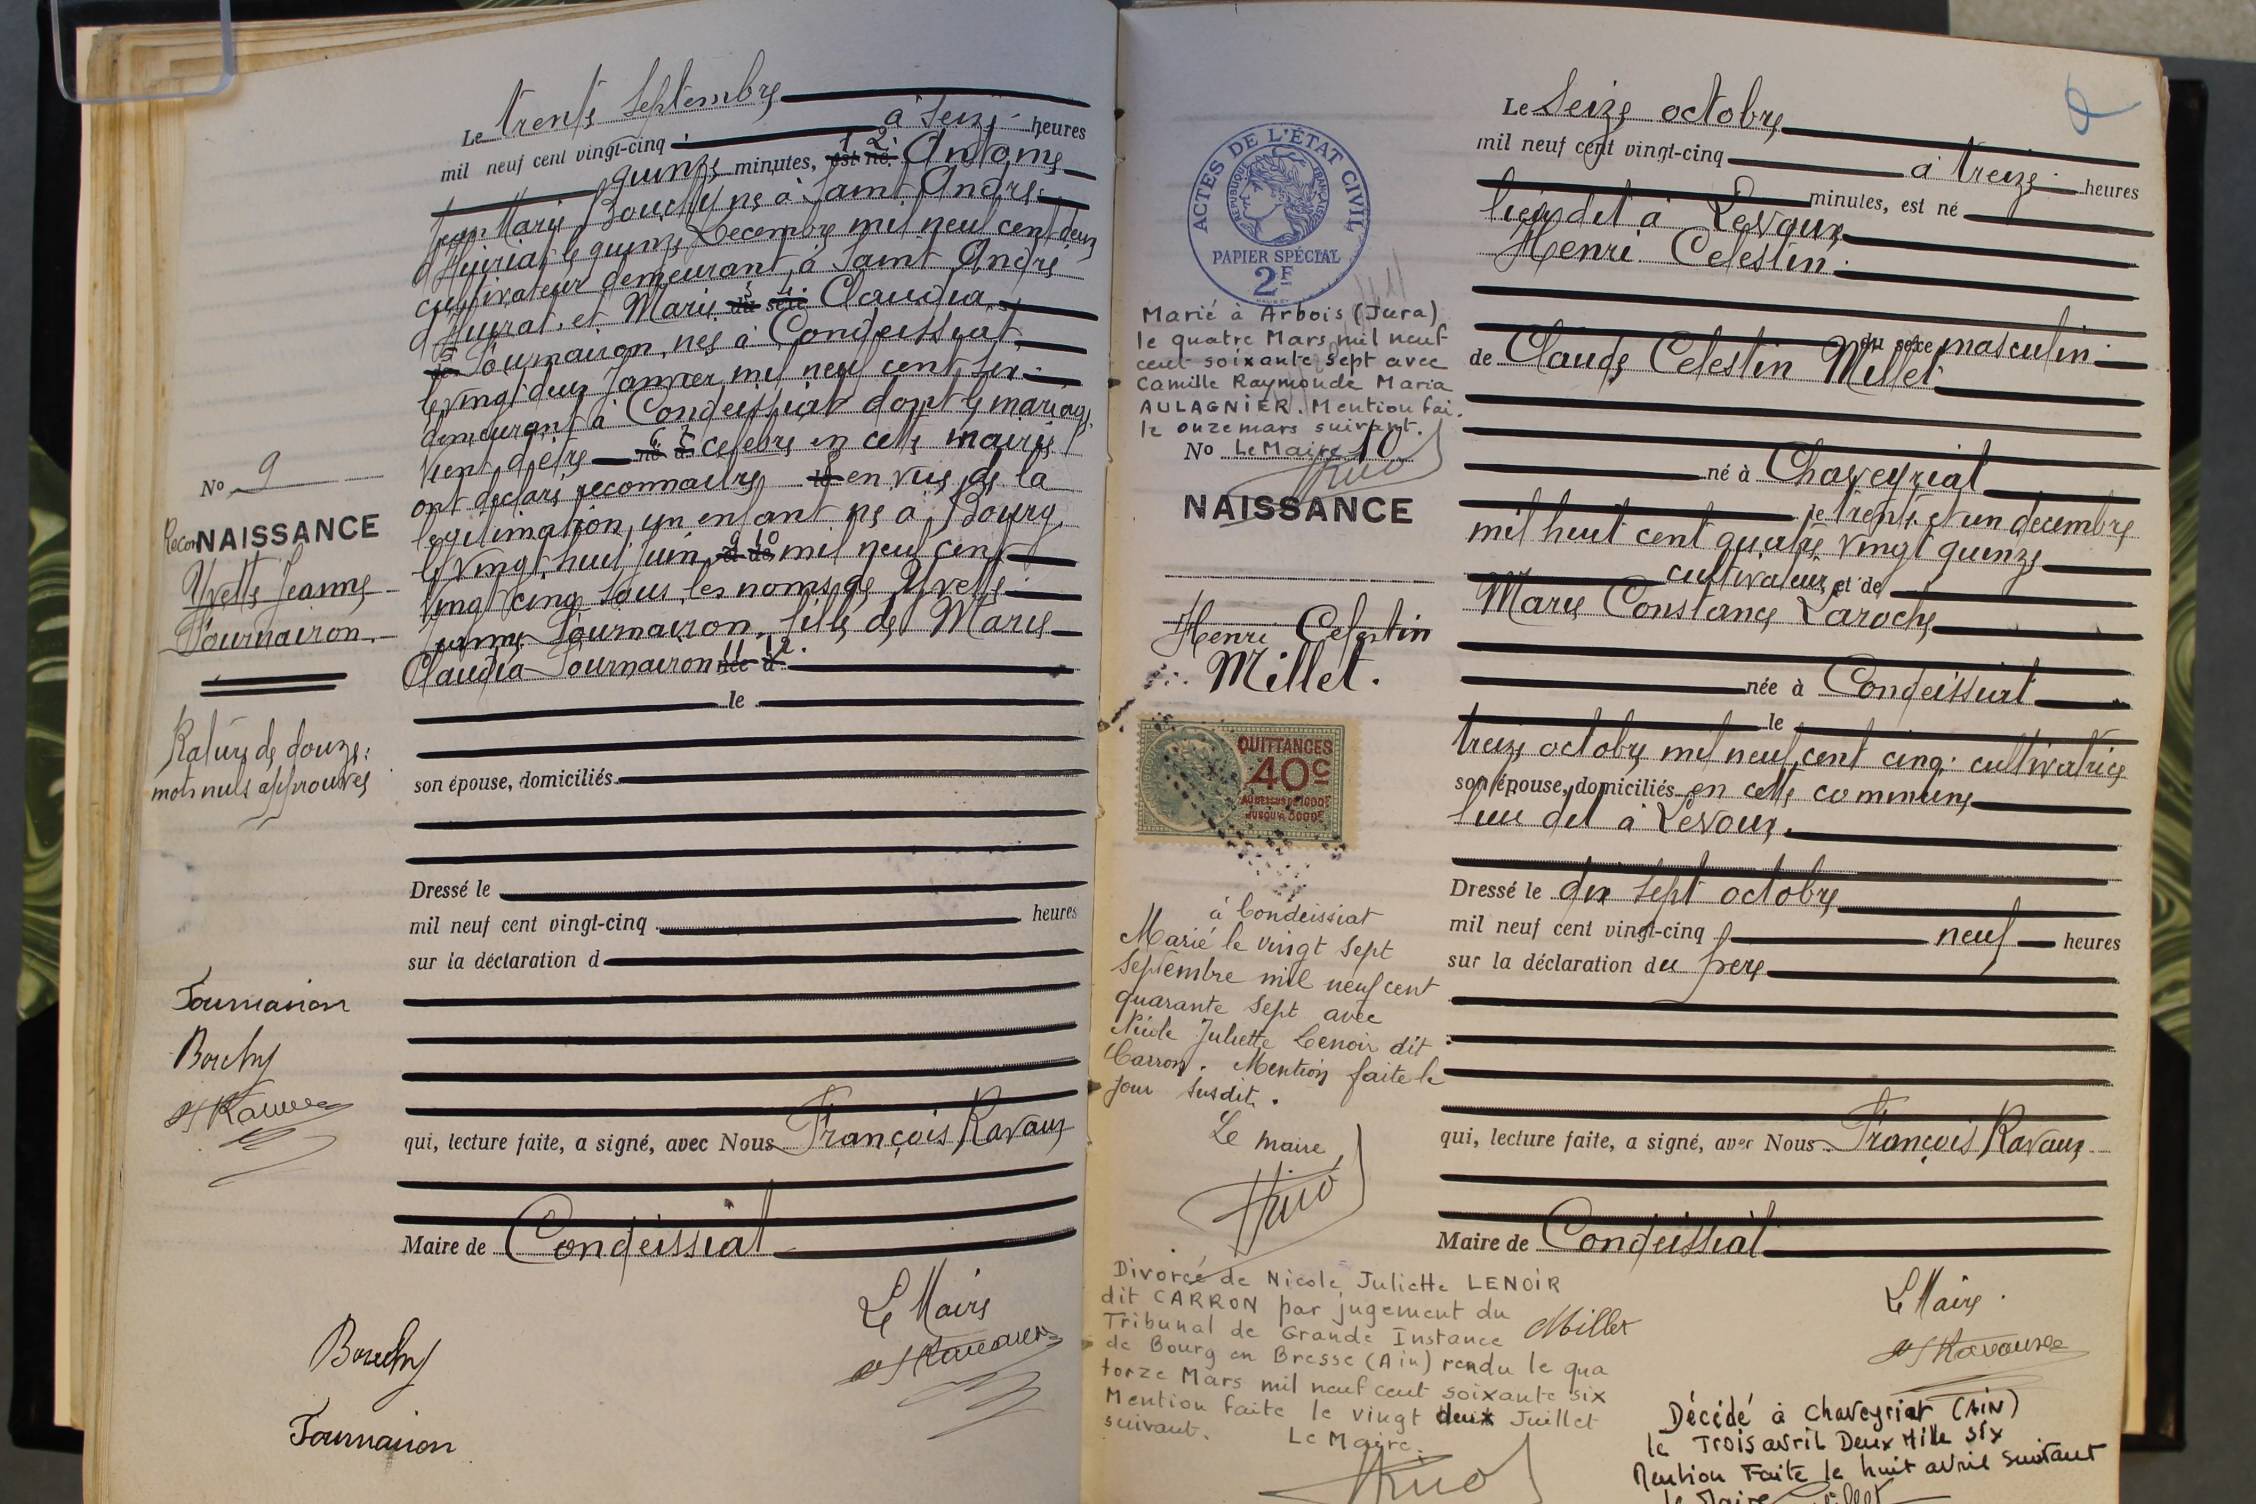 Le trente Septembre
mil neuf cent vingt-cinq à Seize heures
quinze minutes, est né Antoine
Jean Marie Bouchy né à Saint André
d'Huiriat le quinze Décembre mil neuf cent deux
cultivateur demeurant à Saint André
d'Huiriat et Marie du sexe Claudia
de Tournairon, née à Condeissiat
le vingt deux Janvier mil neuf cent six
demeurant à Condeissiat dont le mariage
vient d'être né à célébré en cette mairie
ont déclaré reconnaître le en vue de la
légitimation, un enfant né à Bourg
le vingt huit juin et de mil neuf cent
vingt cinq sous les noms de Yvette
Jeanne Tournairon, fille de Marie
Claudia Tournairon née à
le
son épouse, domiciliés
Dressé le
mil neuf cent vingt-cinq heures
sur la déclaration d
qui, lecture faite, a signé, avec Nous François Ravaux
Maire de Condeissiat
Le Maire
Bouchy
Tournairon
No 9
Recon NAISSANCE
Yvette Jeanne
Tournairon
Rature de douze
mots nuls approuvés
Tournairon
Bouchy
ACTES DE L'ÉTAT CIVIL
RÉPUBLIQUE FRANÇAISE
PAPIER SPÉCIAL
2F
Marié à Arbois (Jura)
le quatre Mars mil neuf
cent soixante sept avec
Camille Raymonde Maria
AULAGNIER. Mention fai.
le onze mars suivant.
Le Maire
No 10
NAISSANCE
Henri Celestin
Millet.
QUITTANCES
40c
AU DESSUS DE 1000F
JUSQU'A 3000F
à Condeissiat
Marié le vingt sept
Septembre mil neuf cent
quarante sept avec
Nicole Juliette Lenoir dit
Carron. Mention faite le
jour susdit.
Le maire,
Divorcé de Nicole Juliette LENOIR
dit CARRON par jugement du
Tribunal de Grande Instance
de Bourg en Bresse (Ain) rendu le qua
torze Mars mil neuf cent soixante six
Mention faite le vingt deux Juillet
suivant. Le Maire.
Le Seize octobre
mil neuf cent vingt-cinq à treize heures
minutes, est né
lieu dit à Levaux
Henri Celestin
du sexe masculin
de Claude Celestin Millet
né à Chaveyriat
le trente et un décembre
mil huit cent quatre vingt quinze
cultivateur et de
Marie Constance Laroche
née à Condeissiat
le
treize octobre mil neuf cent cinq cultivatrice
son épouse, domiciliés en cette commune
lieu dit à Levaux
Dressé le dix sept octobre
mil neuf cent vingt-cinq neuf heures
sur la déclaration du père
qui, lecture faite, a signé, avec Nous François Ravaux
Maire de Condeissiat
Le Maire
Millet
Décédé à Chaveyriat (AIN)
le Trois avril Deux Mille six
Mention Faite le huit avril suivant
le Maire